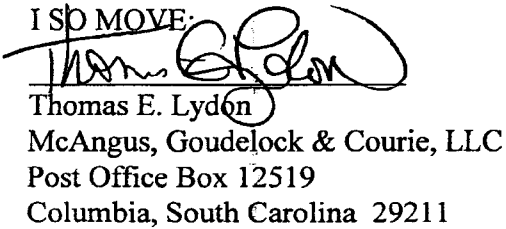 I SO MOVE:
Thomas E. Lydon
Thomas E. Lydon
McAngus, Goudelock & Courie, LLC
Post Office Box 12519
Columbia, South Carolina 29211